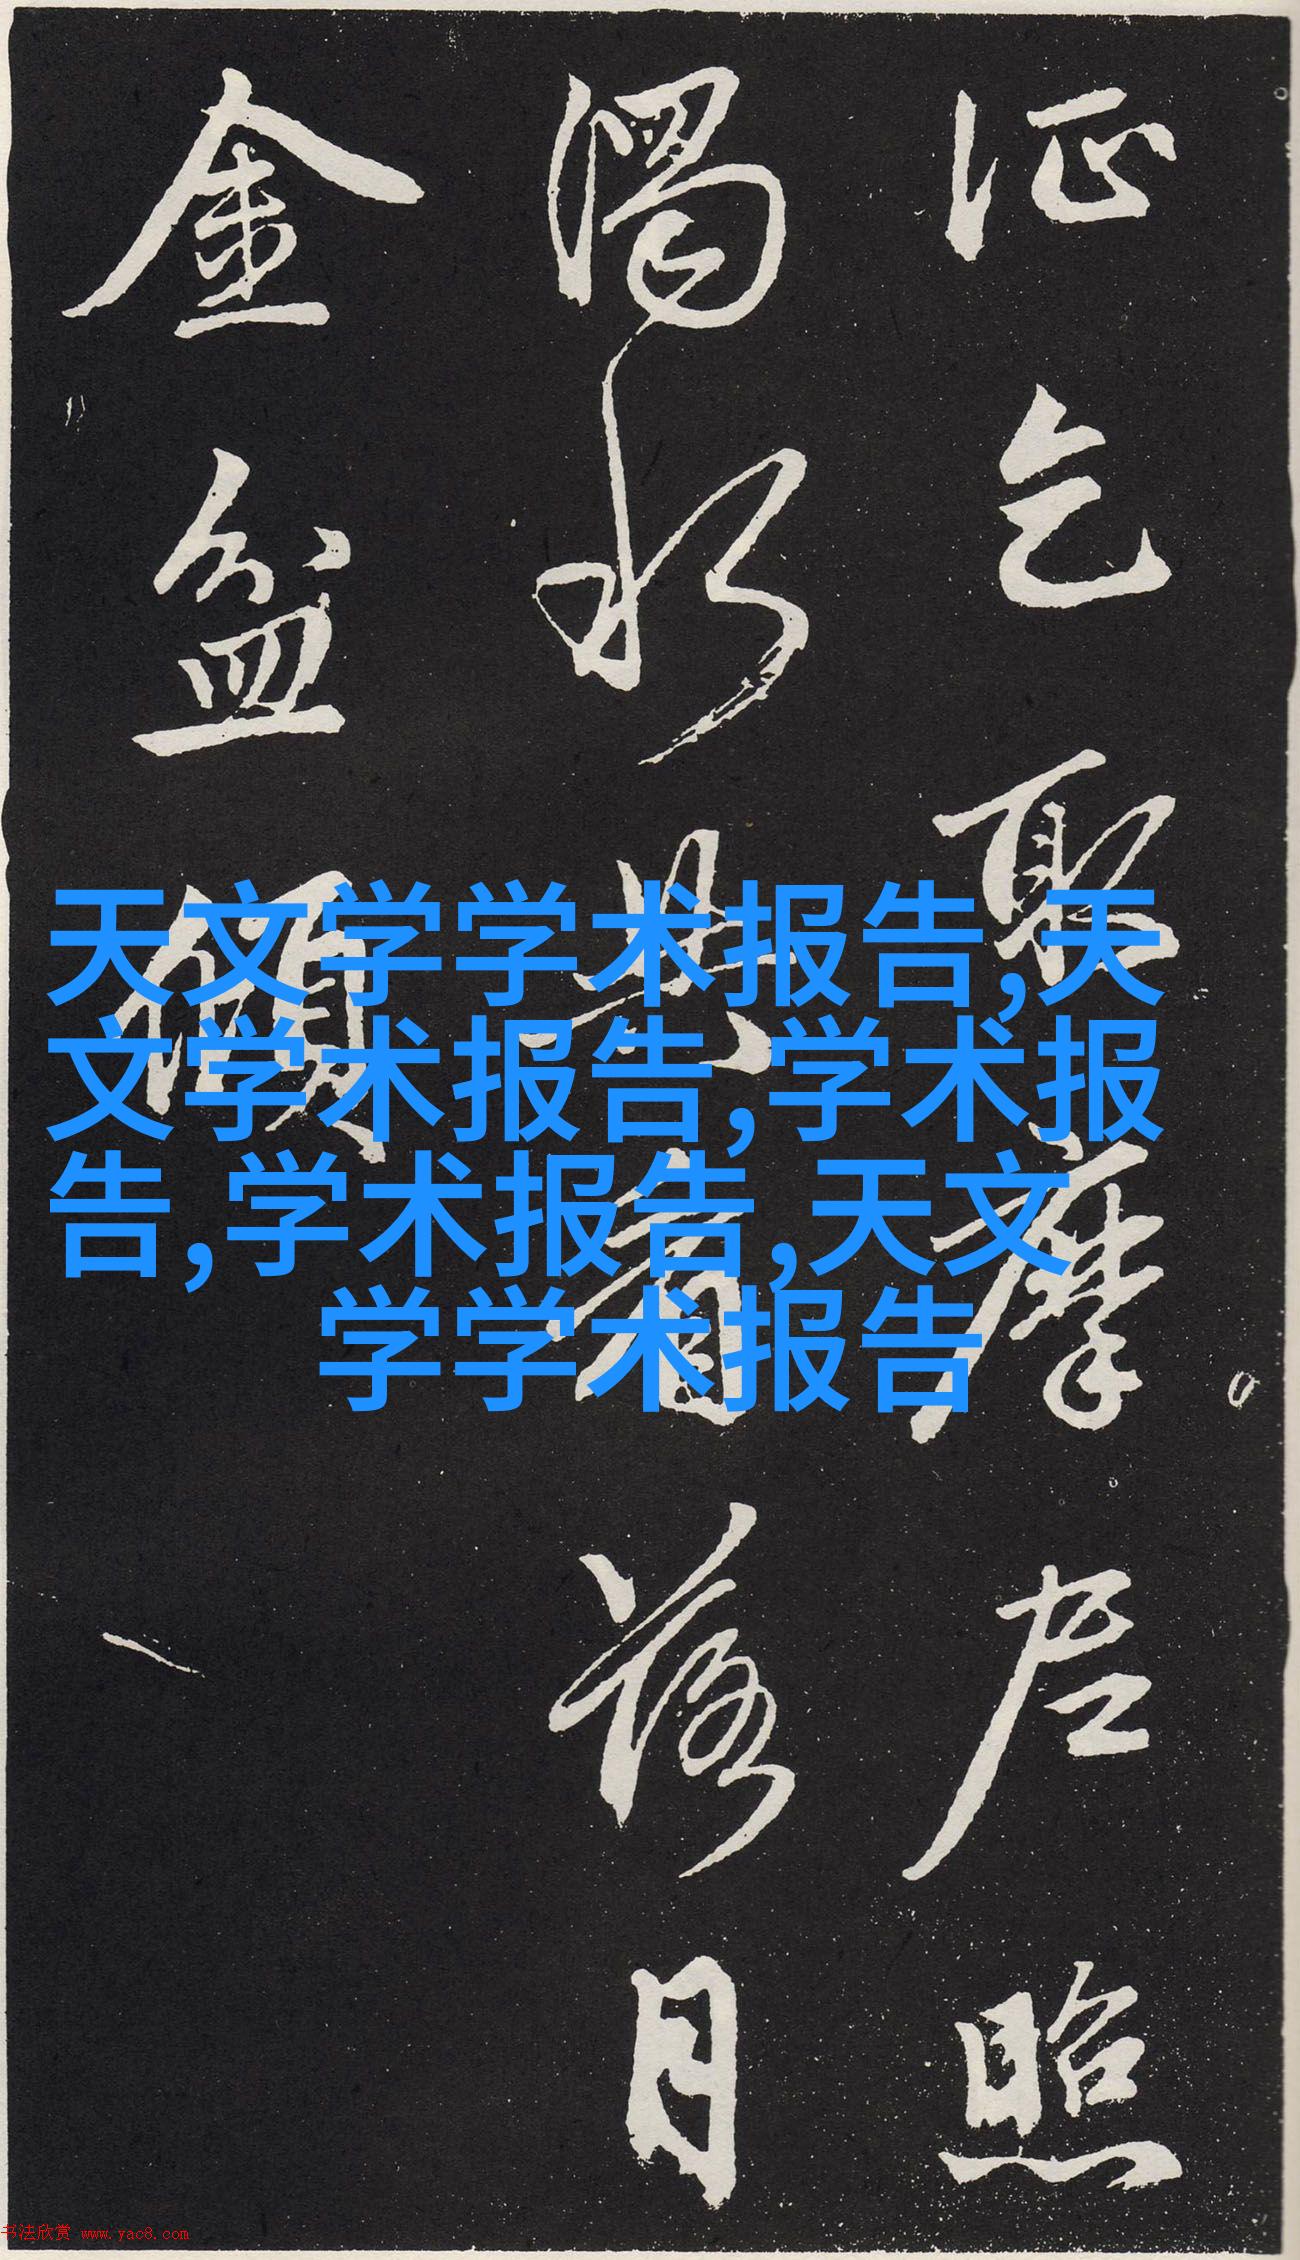 乞取摩尼照
濁水共看落月
金盆傾
天文学学术报告,天
文学术报告,学术报
告,学术报告,天文
学学术报告
书法欣赏 www.yac8.com